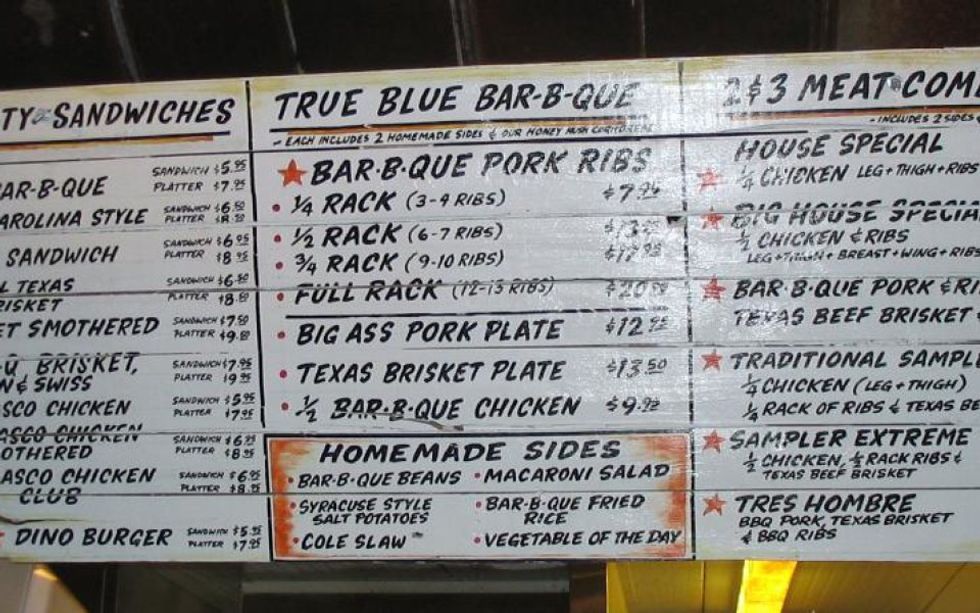 TY SANDWICHES
SANDWICH $5.95
BAR-B-QUE PLATTER $7.95
CAROLINA STYLE SANDWICH $6.50
PLATTER $8.50
SANDWICH SANDWICH $6.95
PLATTER $8.95
TEXAS SANDWICH $6.50
BRISKET PLATTER $8.50
SMOTHERED SANDWICH $7.50
PLATTER $9.50
BRISKET, SANDWICH $7.95
& SWISS PLATTER $9.95
SCO CHICKEN SANDWICH $5.95
PLATTER $7.95
ASCO CHICKEN SANDWICH $6.95
OTHERED PLATTER $8.95
ASCO CHICKEN SANDWICH $6.95
CLUB PLATTER $8.95
DINO BURGER SANDWICH $5.95
PLATTER $7.95
TRUE BLUE BAR-B-QUE
- EACH INCLUDES 2 HOMEMADE SIDES & OUR HONEY HUSH CORNBREAD
BAR-B-QUE PORK RIBS
• 1/4 RACK (3-4 RIBS) $7.95
• 1/2 RACK (6-7 RIBS)
• 3/4 RACK (9-10 RIBS)
• FULL RACK (12-13 RIBS)
• BIG ASS PORK PLATE $12.95
• TEXAS BRISKET PLATE $13.50
• 1/2 BAR-B-QUE CHICKEN $9.95
HOMEMADE SIDES
• BAR-B-QUE BEANS • MACARONI SALAD
• SYRACUSE STYLE SALT POTATOES • BAR-B-QUE FRIED RICE
• COLE SLAW • VEGETABLE OF THE DAY
2 & 3 MEAT COM
- INCLUDES 2 SIDES &
HOUSE SPECIAL
1/4 CHICKEN LEG + THIGH + RIBS
BIG HOUSE SPECIAL
1/2 CHICKEN & RIBS
LEG + THIGH + BREAST + WING + RIBS
BAR-B-QUE PORK & RI
TEXAS BEEF BRISKET
TRADITIONAL SAMPL
1/4 CHICKEN (LEG + THIGH)
1/4 RACK OF RIBS & TEXAS BE
SAMPLER EXTREME
1/2 CHICKEN, 1/2 RACK RIBS &
TEXAS BEEF BRISKET
TRES HOMBRE
BBQ PORK, TEXAS BRISKET
& BBQ RIBS